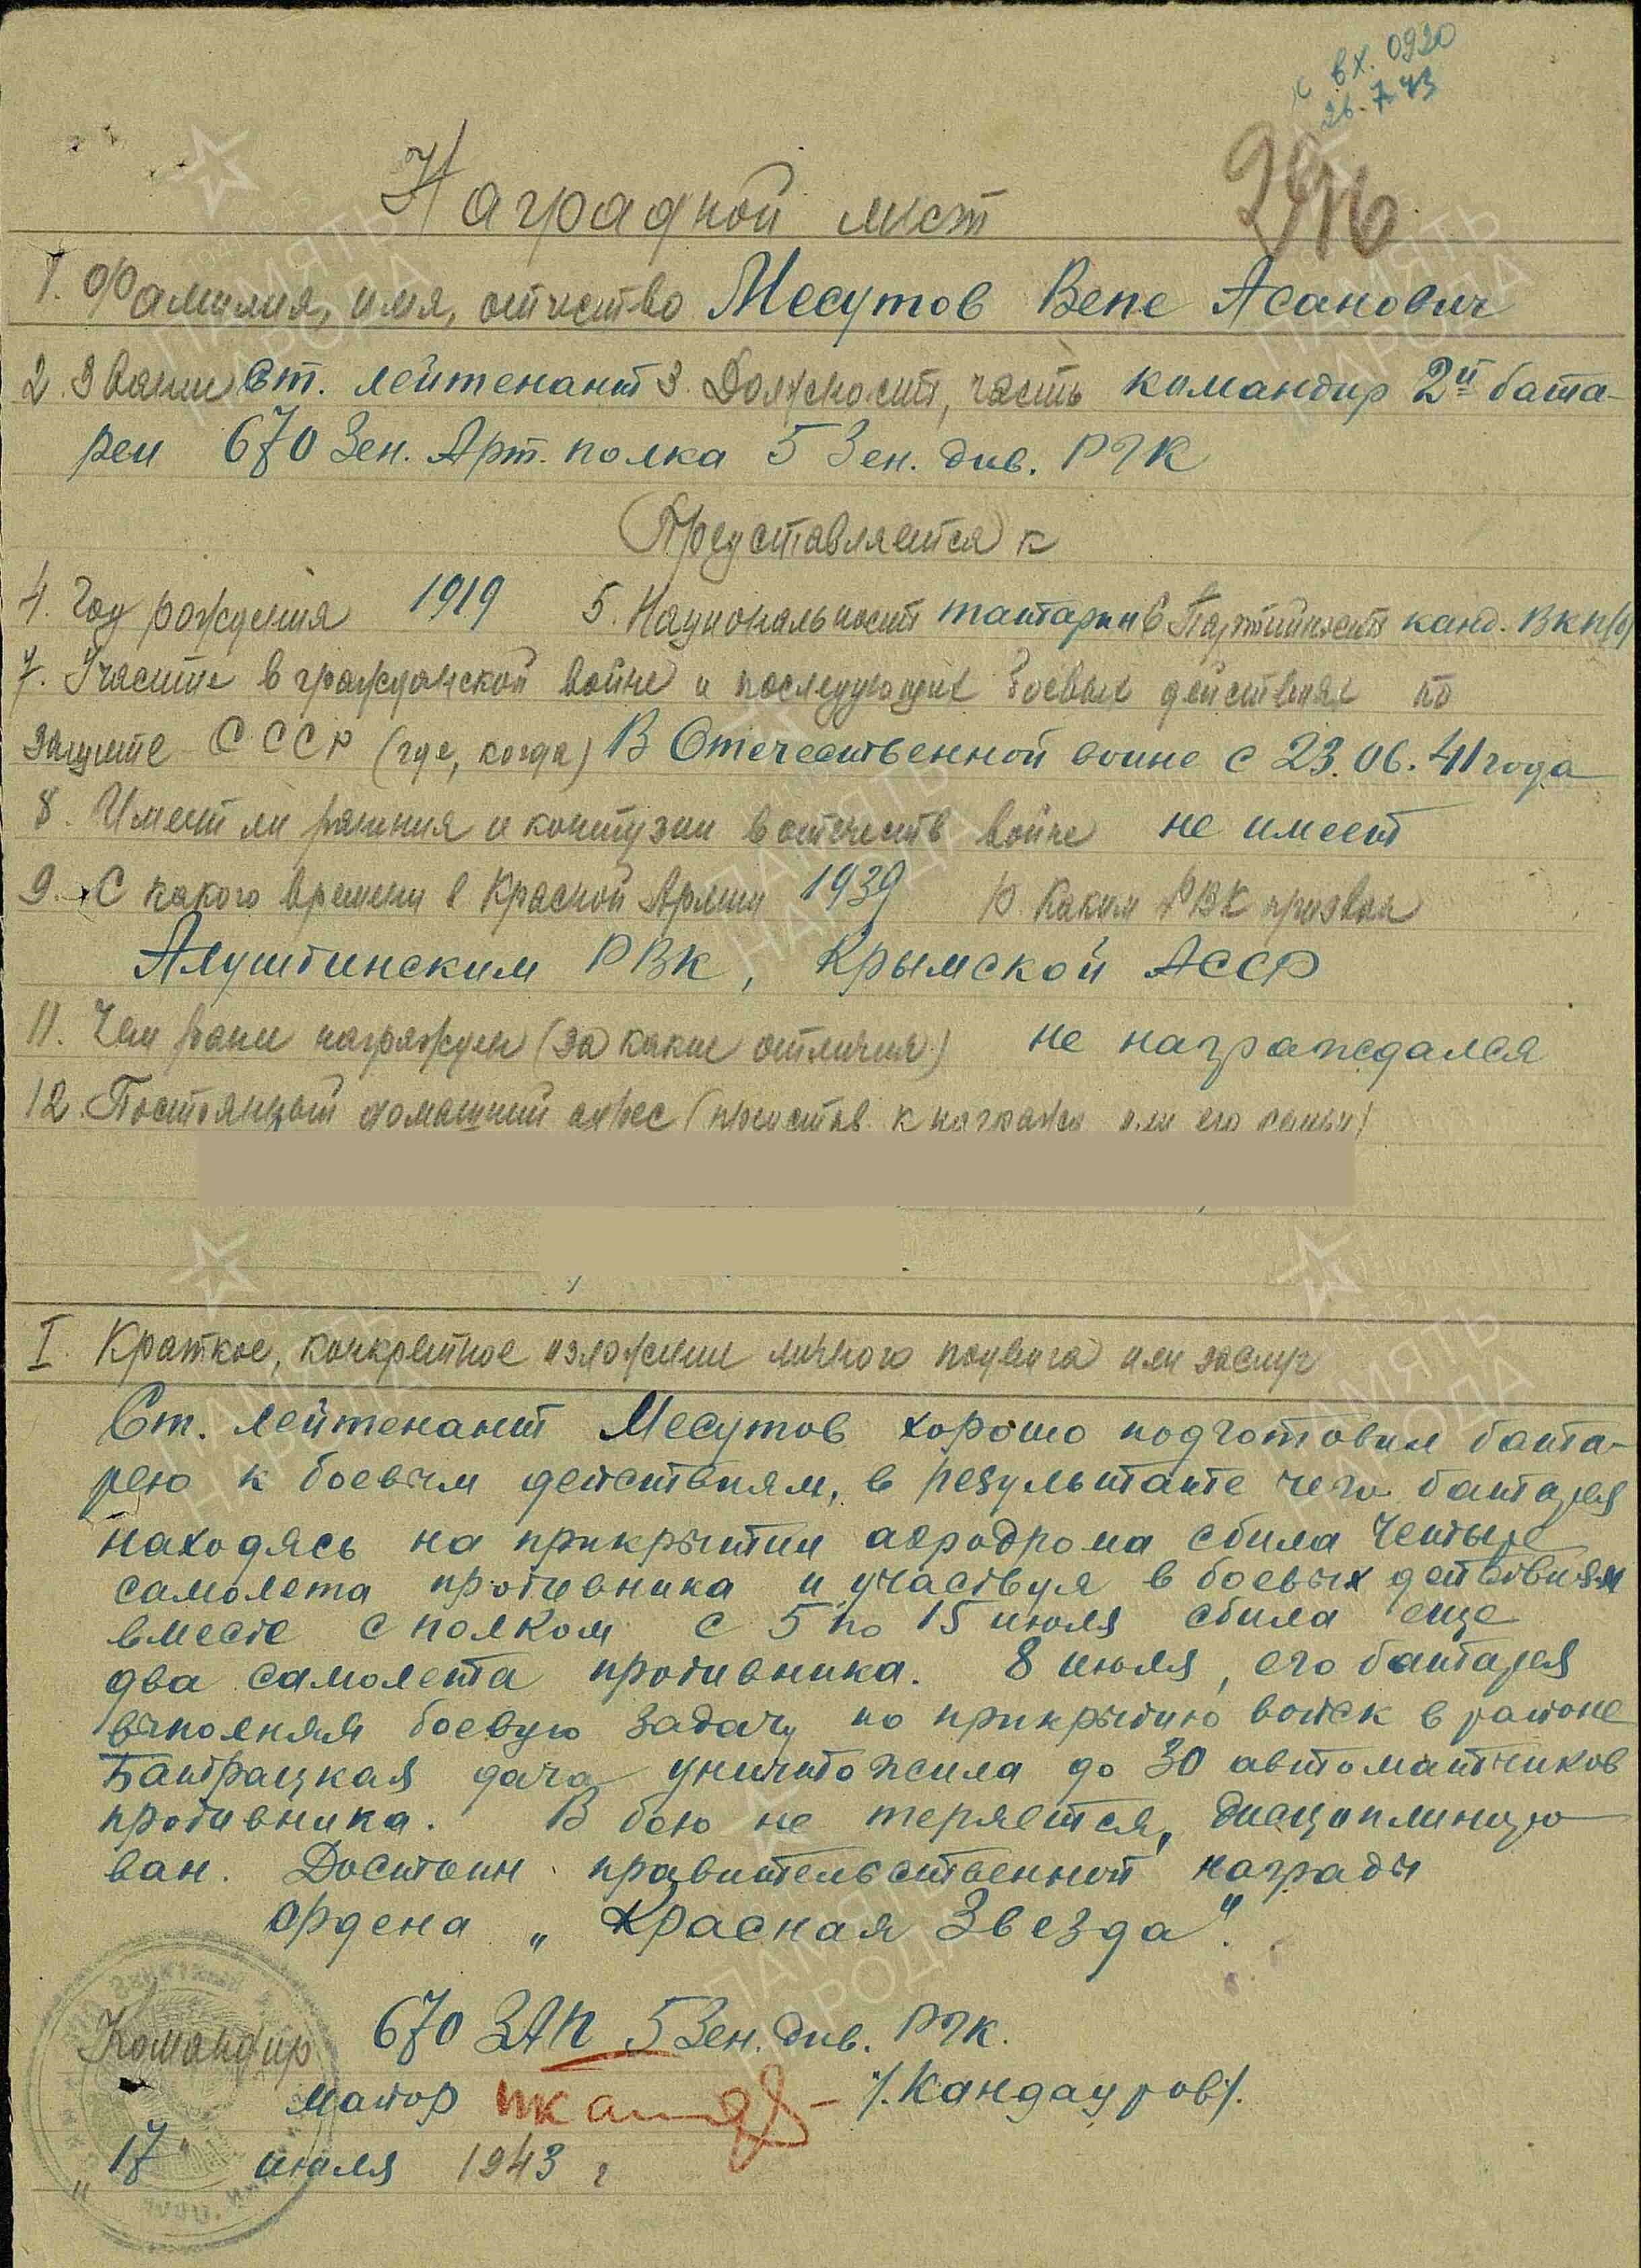 вх. 0920
26.7.43
Наградной лист
1. Фамилия, имя, отчество Месутов Вепе Асанович
2. Звание Ст. лейтенант 3. Должность, часть командир 2й бата-
реи 670 Зен. Арт. полка 5 Зен. див. РГК
Представляется к
4. Год рождения 1919 5. Национальность татарин 6 Партийность канд. ВКП(б)
7. Участие в гражданской войне и последующих боевых действиях по
защите СССР (где, когда) В Отечественной воине с 23.06.41 года
8. Имеет ли ранения и контузии в отечеств войне не имеет
9. С какого времени в Красной Армии 1939 10. Каким РВК призван
Алуштинским РВК, Крымской АССР
11. Чем ранее награжден (за какие отличия) не награждался
12. Постоянный домашний адрес (представ. к награжд. или его семьи)
I. Краткое, конкретное изложение личного подвига или заслуг
Ст. лейтенант Месутов хорошо подготовил бата-
рею к боевым действиям, в результате чего батарея
находясь на прикрытии аэродрома сбила четыре
самолета противника и участвуя в боевых действиях
вместе с полком с 5 по 15 июля сбила еще
два самолета противника. 8 июля, его батарея
выполняя боевую задачу по прикрытию войск в районе
Батрацкая дача уничтожила до 30 автоматчиков
противника. В бою не теряется, дисциплиниро-
ван. Достоин правительственной награды
Ордена „Красная Звезда".
Командир 670 ЗАП 5 Зен. див. РГК.
майор /.Кандауров/.
„17" июля 1943 г
ПАМЯТЬ
НАРОДА